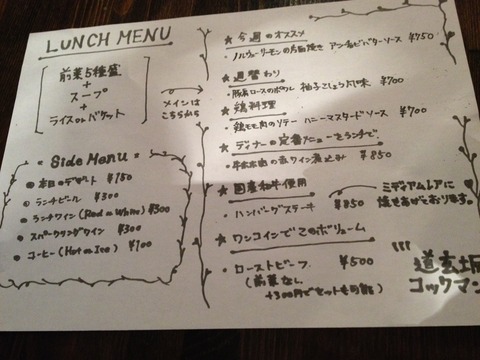 LUNCH MENU
前菜5種盛
+
スープ
+
ライスorバゲット
メインは
こちらから
Side Menu
本日のデザート ¥150
ランチビール ¥300
ランチワイン (Red or White) ¥300
スパークリングワイン ¥300
コーヒー (Hot or Ice) ¥100
★ 今週のオススメ
・ノルウェーサーモンの方面焼き アンチョビバターソース ¥750
★ 週替わり
・豚肩ロースのポワレ 柚子こしょう風味 ¥700
★ 鶏料理
・鶏モモ肉のソテー ハニーマスタードソース ¥700
★ ディナーの定番メニューをランチで
・牛ホホ肉の赤ワイン煮込み ¥850
★ 国産和牛使用
・ハンバーグステーキ ¥850
ミディアムレアに
焼きあげております。
★ ワンコインでこのボリューム
・ローストビーフ ¥500
(前菜なし
+300円でセットも可能)
道玄坂
コックマン